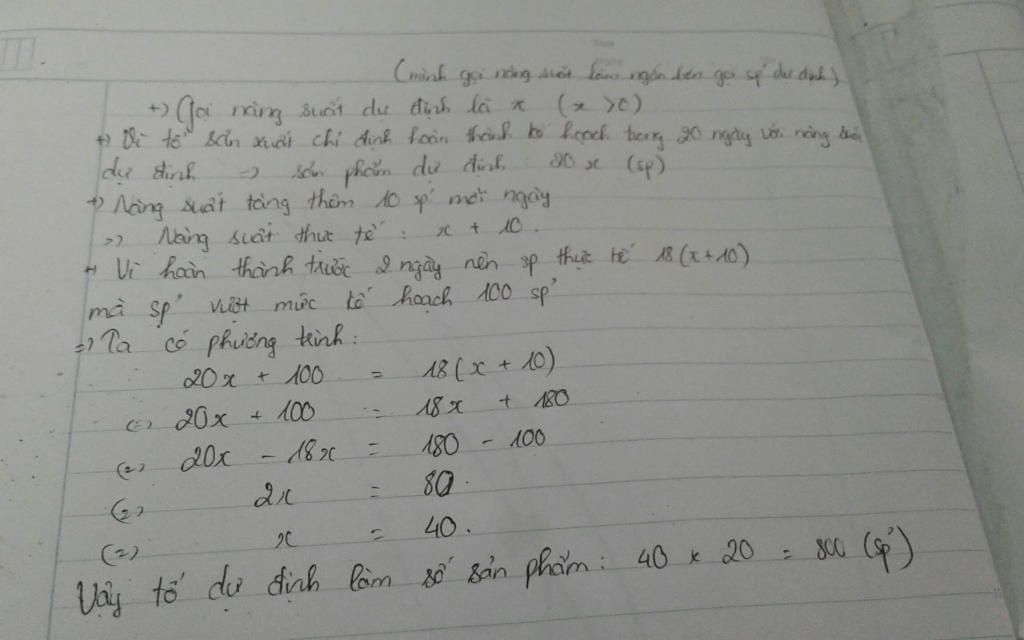 (mình gọi năng suất làm ngắn hơn gọi sp dự định)
+) Gọi năng suất dự định là x (x > 0)
+) Vì tổ sản xuất chỉ định hoàn thành kế hoạch trong 20 ngày với năng suất
dự định => sản phẩm dự định : 20x (sp)
+) Năng suất tăng thêm 10 sp mỗi ngày
=> Năng suất thực tế : x + 10.
+) Vì hoàn thành trước 2 ngày nên sp thực tế 18(x+10)
mà sp vượt mức kế hoạch 100 sp
=> Ta có phương trình:
20x + 100 = 18(x + 10)
(=) 20x + 100 = 18x + 180
(=) 20x - 18x = 180 - 100
(=) 2x = 80.
(=) x = 40.
Vậy tổ dự định làm số sản phẩm: 40 x 20 = 800 (sp)